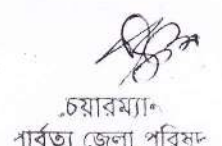 চেয়ারম্যান
পার্বত্য জেলা পরিষদ